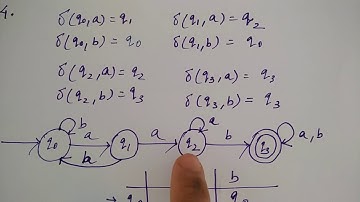 4.
δ(q0,a) = q1   δ(q1,a) = q2
δ(q0,b) = q0   δ(q1,b) = q0
δ(q2,a) = q2   δ(q3,a) = q3
δ(q2,b) = q3   δ(q3,b) = q3
b a
a a b a,b
q0 q1 q2 q3
b